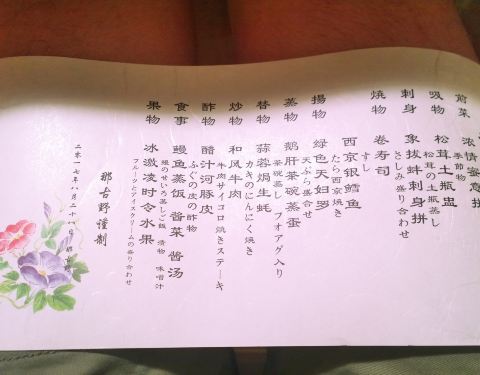 前菜 浓情蜜意拼
季節物
吸物 松茸土瓶盅
松茸の土瓶蒸し
刺身 象拔蚌刺身拼
さしみ盛り合わせ
焼物 卷寿司
すし
西京银鳕鱼
たら西京焼き
揚物 绿色天妇罗
天ぷら盛合せ
蒸物 鹅肝茶碗蒸蛋
茶碗蒸し フォアグ入り
替物 蒜蓉焗生蚝
カキのにんにく焼き
炒物 和风牛肉
牛肉サイコロ焼きステーキ
酢物 醋汁河豚皮
ふぐの皮の酢物
食事 鳗鱼蒸饭 酱菜 酱汤
鰻のせいろ蒸しご飯 漬物 味噌汁
果物 冰激凌时令水果
フルーツとアイスクリームの盛り合わせ
那古野謹制
二零一七年八月二十八日